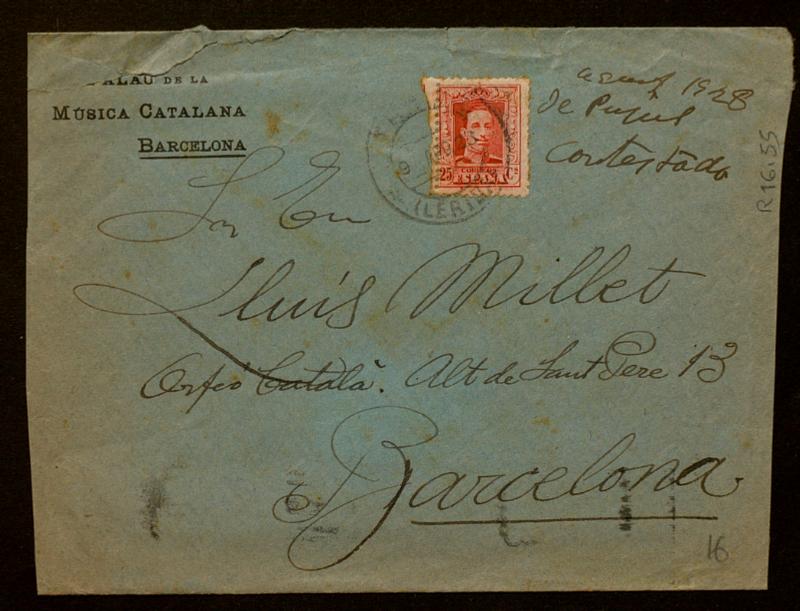 PALAU DE LA
MÚSICA CATALANA
BARCELONA
CORREOS
25 ESPAÑA Cs
(LERIDA)
agust 1928
de Pujul
contestado
R16.55
Sr En
Lluís Millet
Orfeó Català. Alt de Sant Pere 13
Barcelona
16